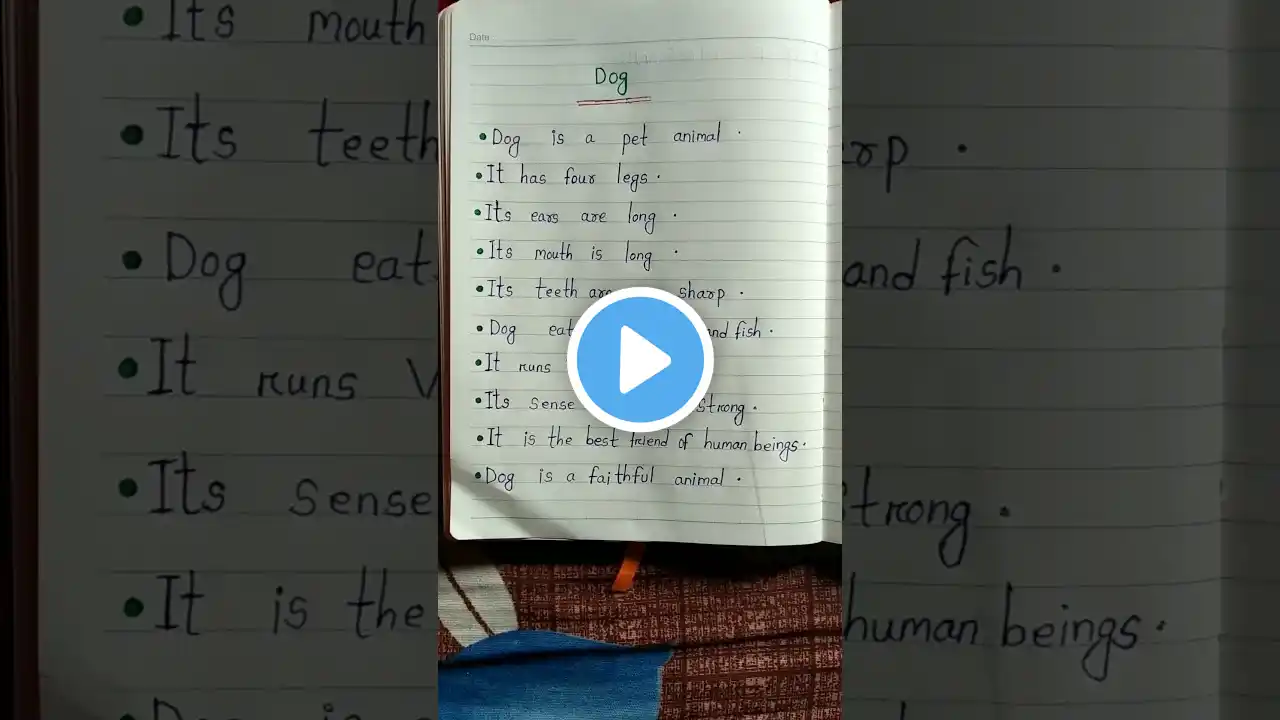 Date
Dog
• Dog is a pet animal.
• It has four legs.
• Its ears are long.
• Its mouth is long.
• Its teeth are sharp.
• Dog eat and fish.
• It runs
• Its sense strong.
• It is the best friend of human beings.
• Dog is a faithful animal.